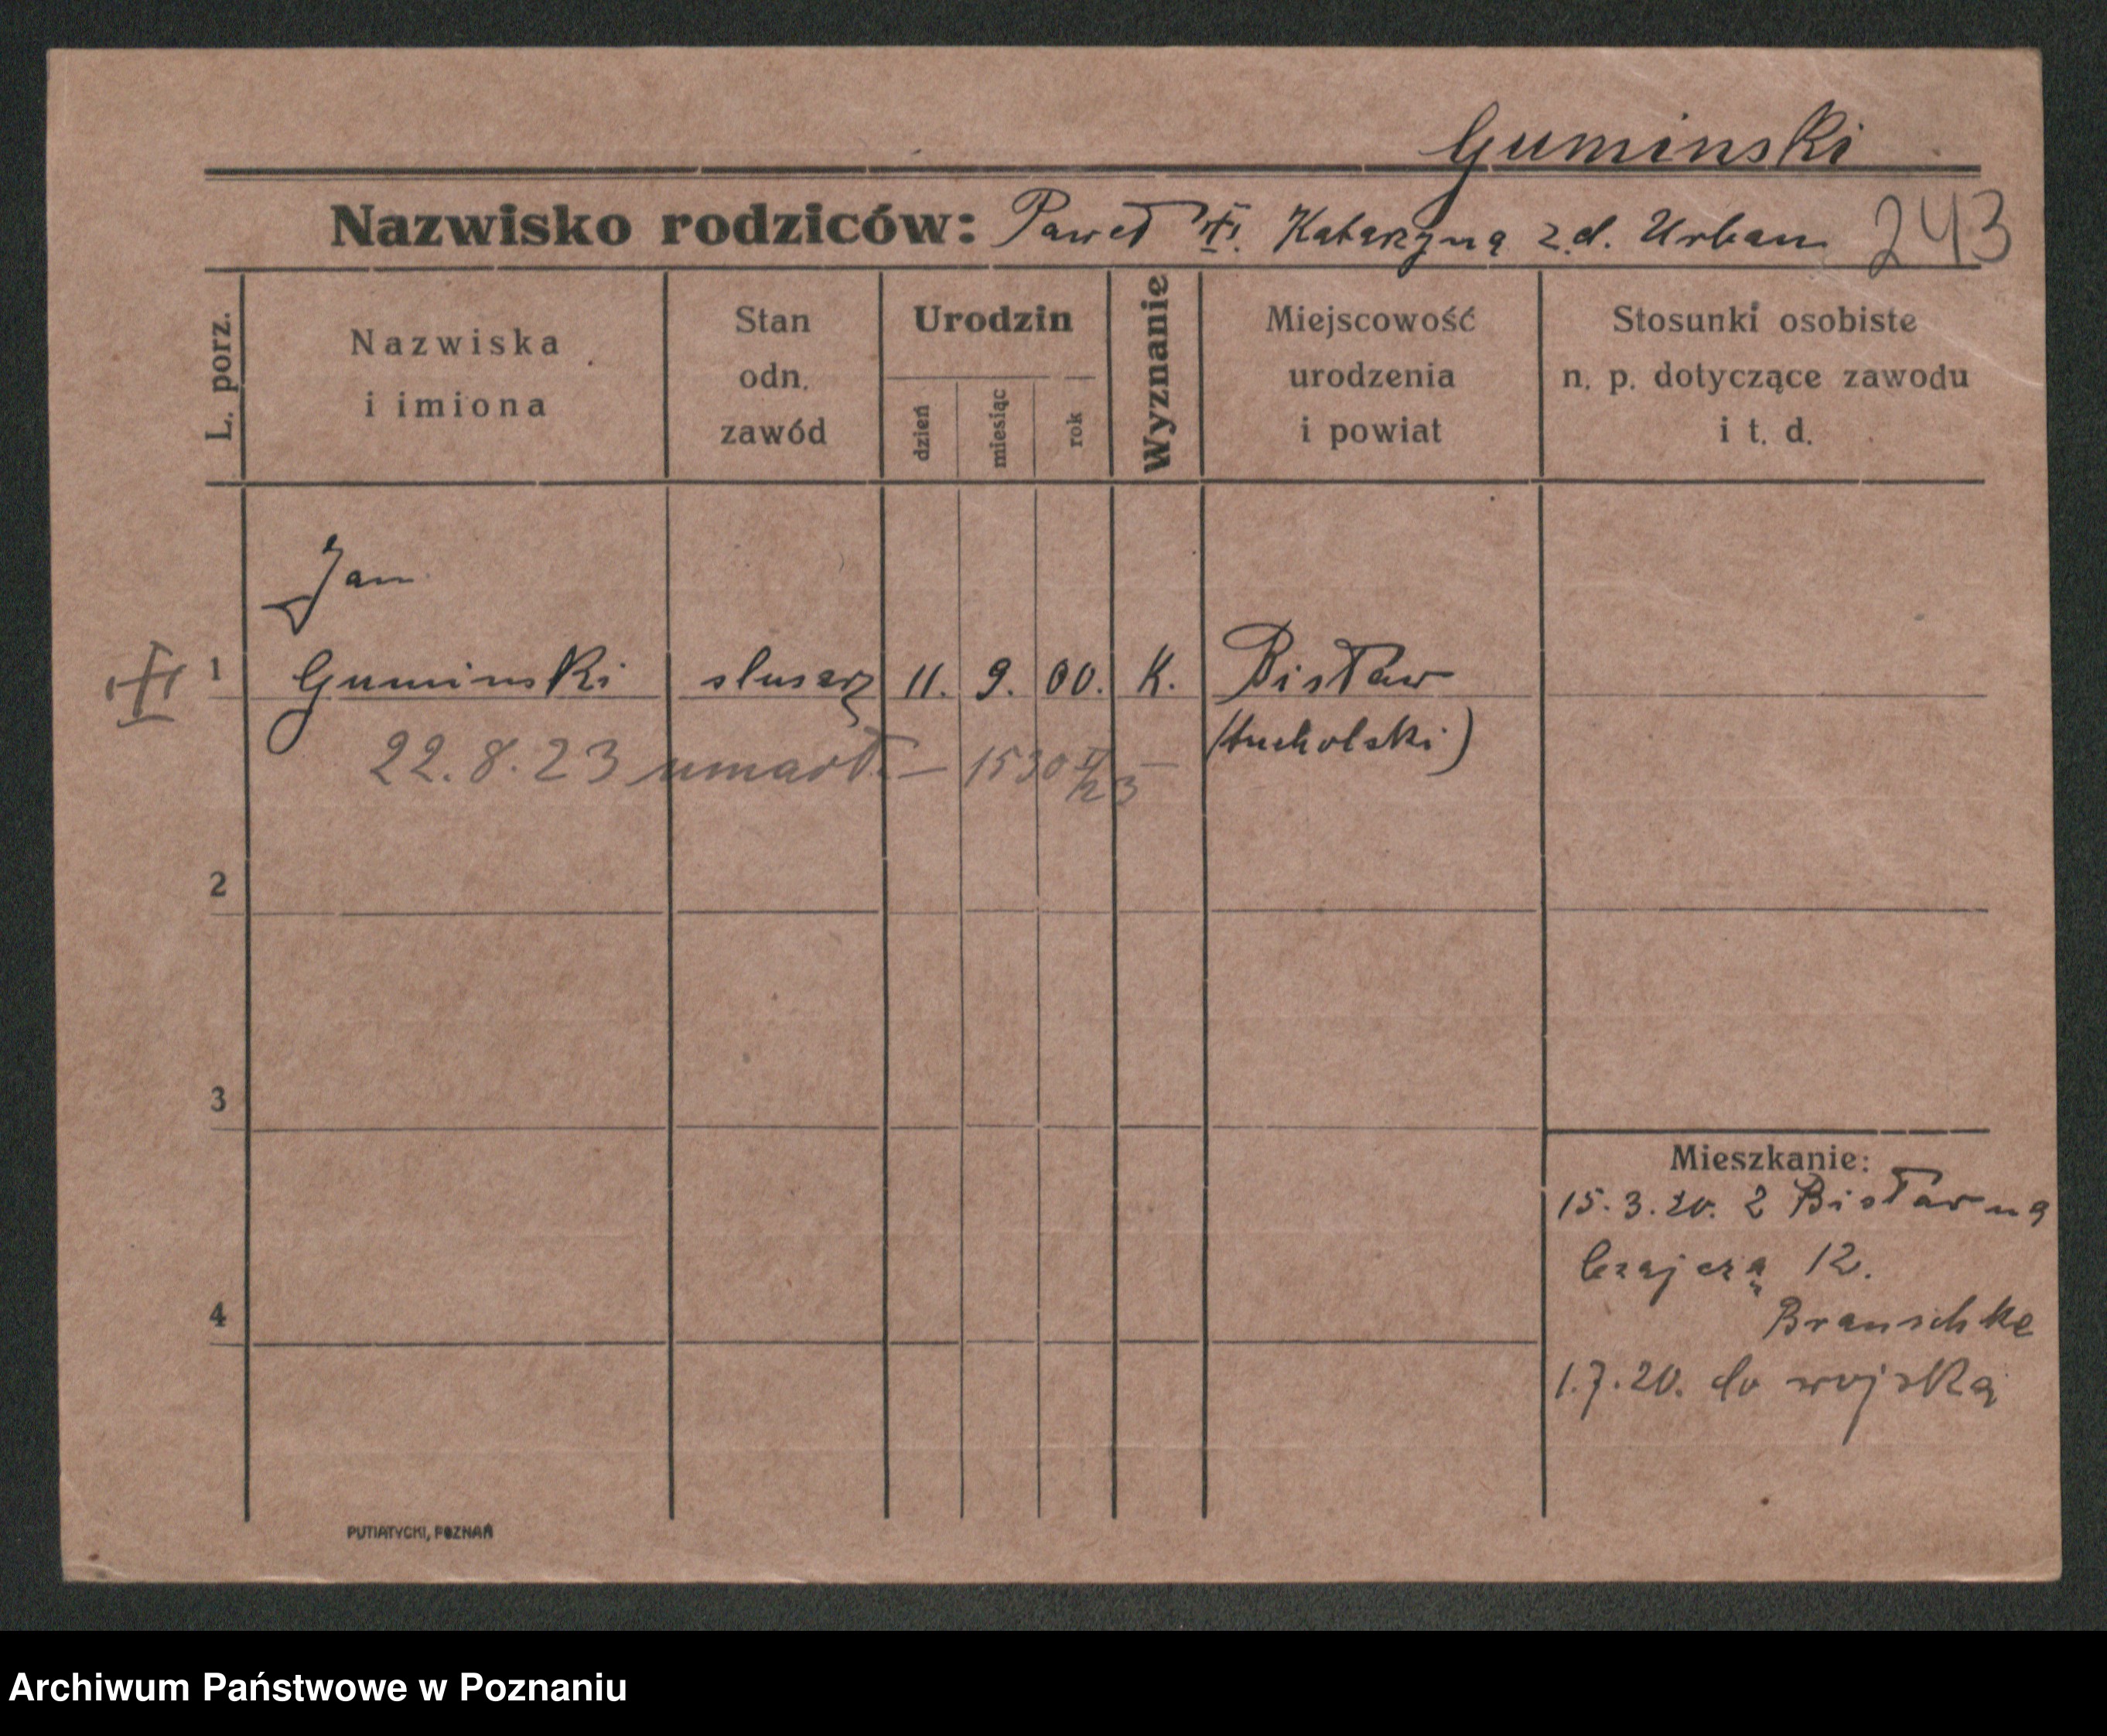 Guminski
Nazwisko rodziców: Paweł Katarzyna z.d. Urban 243
L. porz.
Nazwiska
i imiona
Stan
odn.
zawód
Urodzin
dzień
miesiąc
rok
Wyznanie
Miejscowość
urodzenia
i powiat
Stosunki osobiste
n. p. dotyczące zawodu
i t. d.
Jan
1 Guminski slusarz 11. 9. 00. K. Bisław
(tucholski)
22.8.23 umarł. - 1530
2
3
4
Mieszkanie:
15.3.20. z Bisławna
12.
Brauschke
1.7.20. do wojska
PUTIATYCKI, POZNAŃ
Archiwum Państwowe w Poznaniu